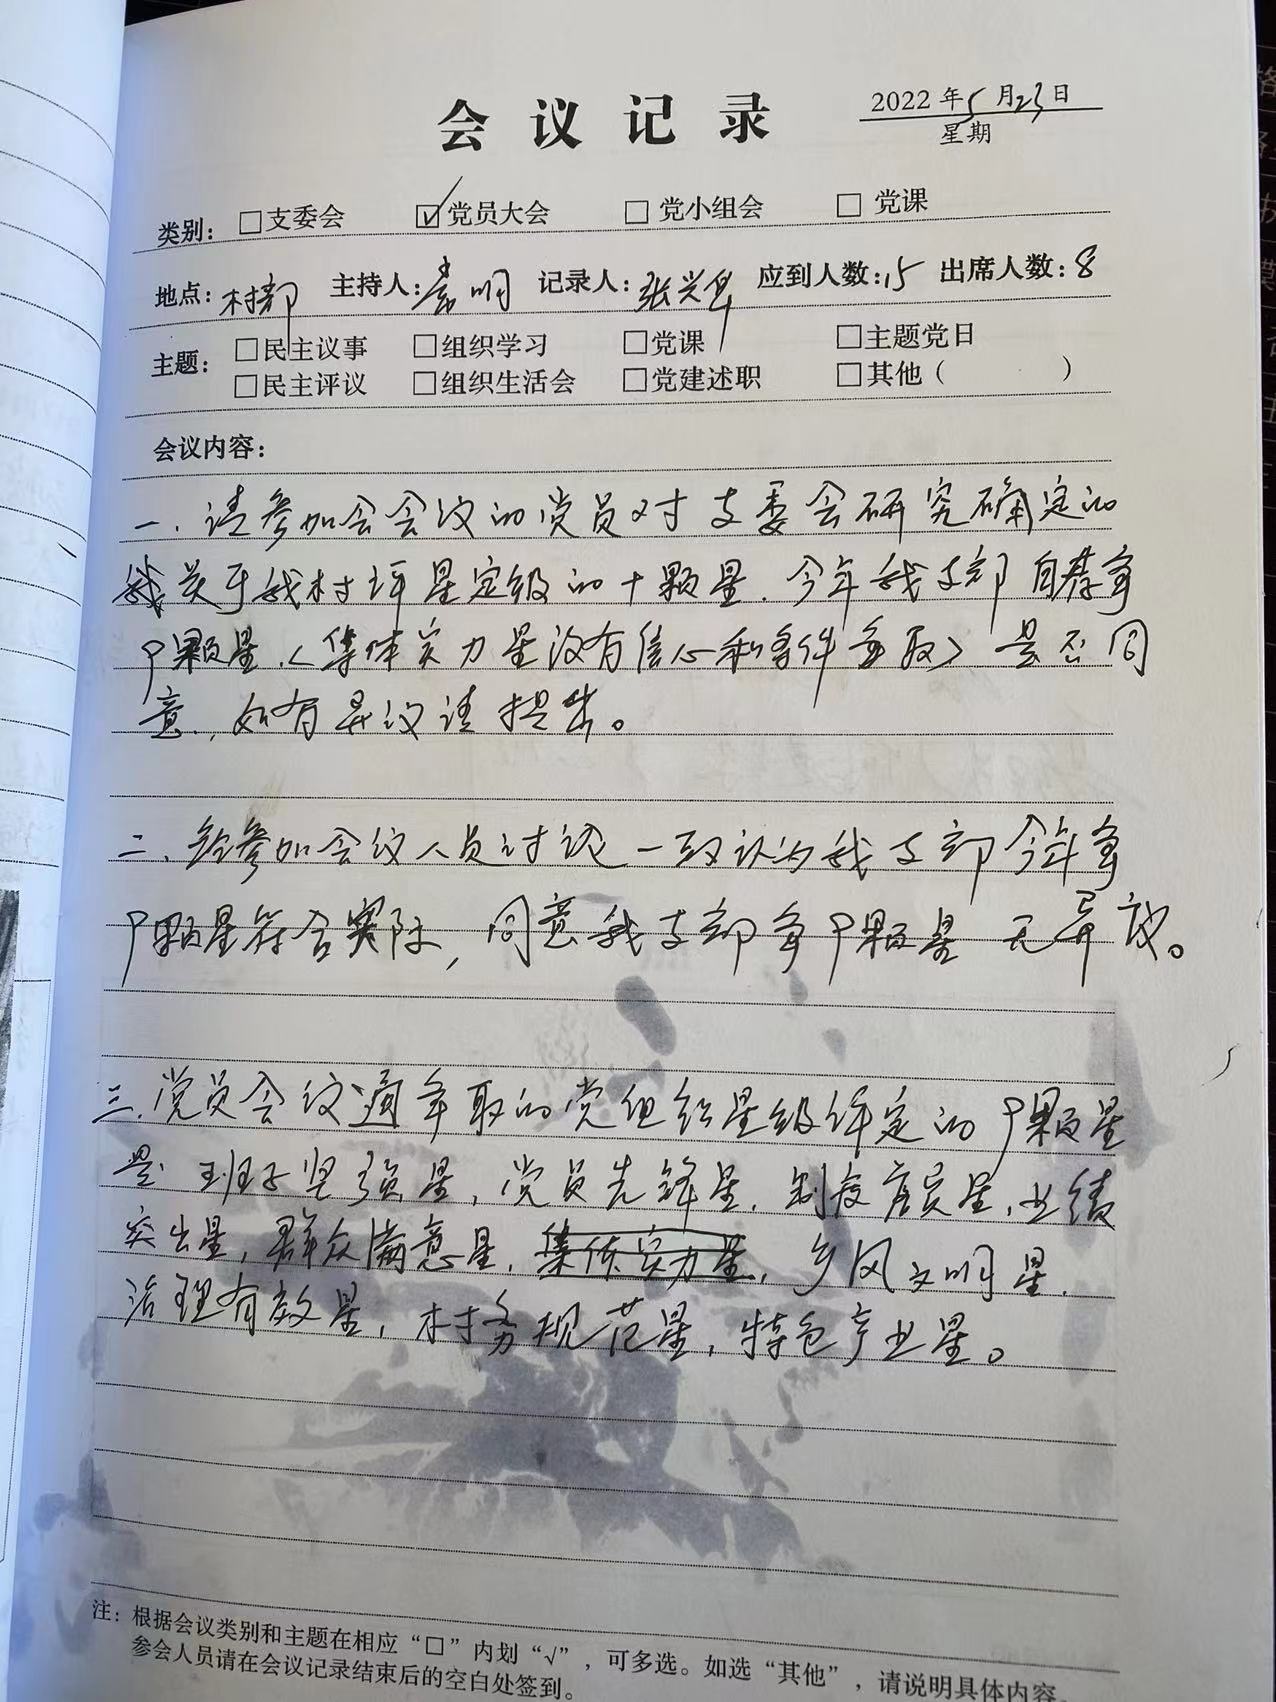 会议记录
2022年5月23日
星期
类别: □支委会 ☑党员大会 □党小组会 □党课
地点: 村部 主持人: 袁明 记录人: 张兴 应到人数: 15 出席人数: 8
主题: □民主议事 □组织学习 □党课 □主题党日
□民主评议 □组织生活会 □党建述职 □其他( )
会议内容:
一、请参加会会议的党员对支委会研究确定的
我关于我村评星定级的十颗星.今年我支部自荐争
9颗星.〈集体实力星没有信心和条件争取〉是否同
意.,如有异议请提出。
二、经参加会议人员讨论一致认为我支部今年争
9颗星符合实际,同意我支部争9颗星无异议。
三.党员会议通争取的党组织星级评定的9颗星
是:班子坚强星,党员先锋星.制度 星,业绩
突出星,群众满意星.集体实力星,乡风文明星.
治理有效星,村务规范星,特色产业星。
注:根据会议类别和主题在相应“□”内划“√”,可多选。如选“其他”,请说明具体内容。
参会人员请在会议记录结束后的空白处签到。